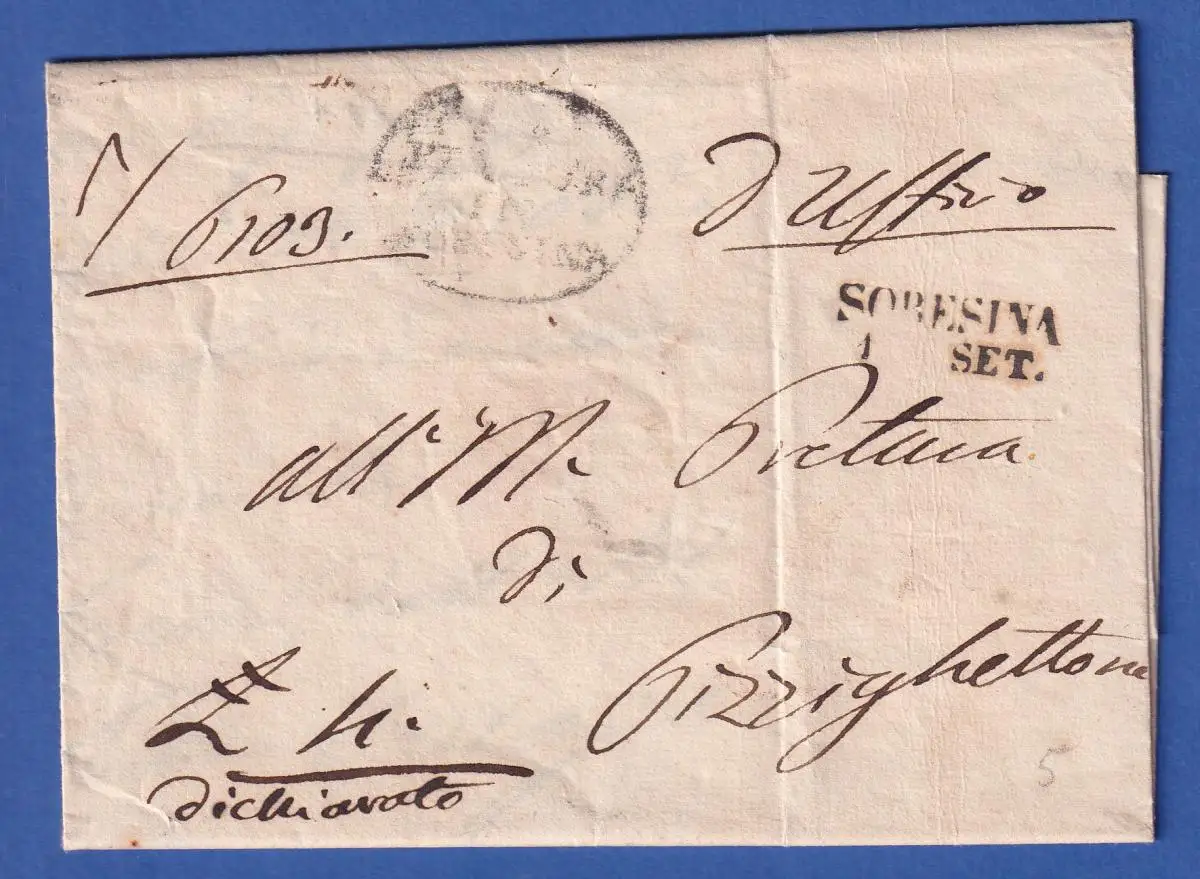 6103.
d'Uffizio
SORESINA
1 SET.
all' I. R. Pretura
di
Pizzighettone
dichiarato
5